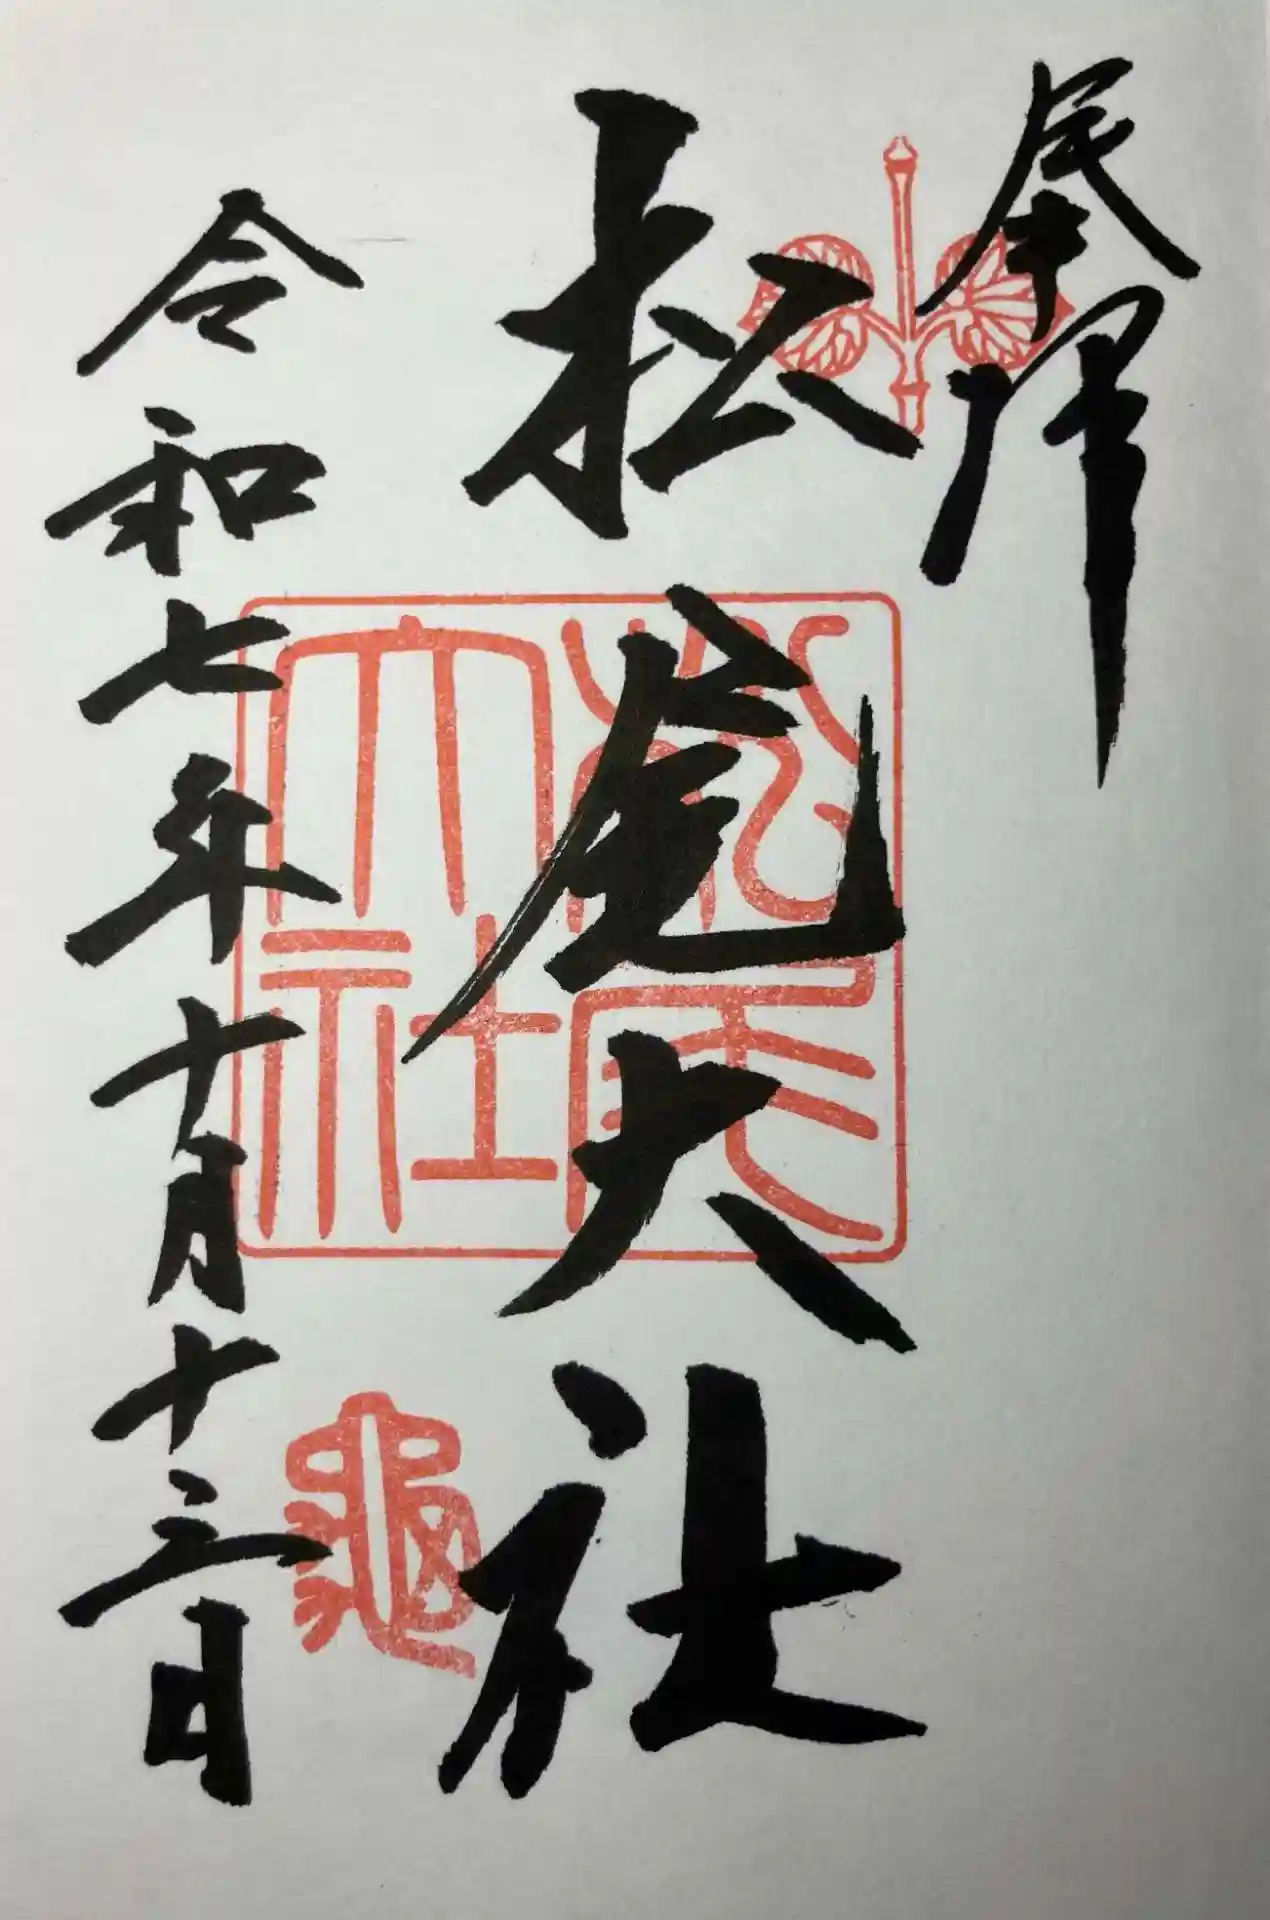 奉拝
松尾大社
令和七年十月十三日
松尾大社
亀